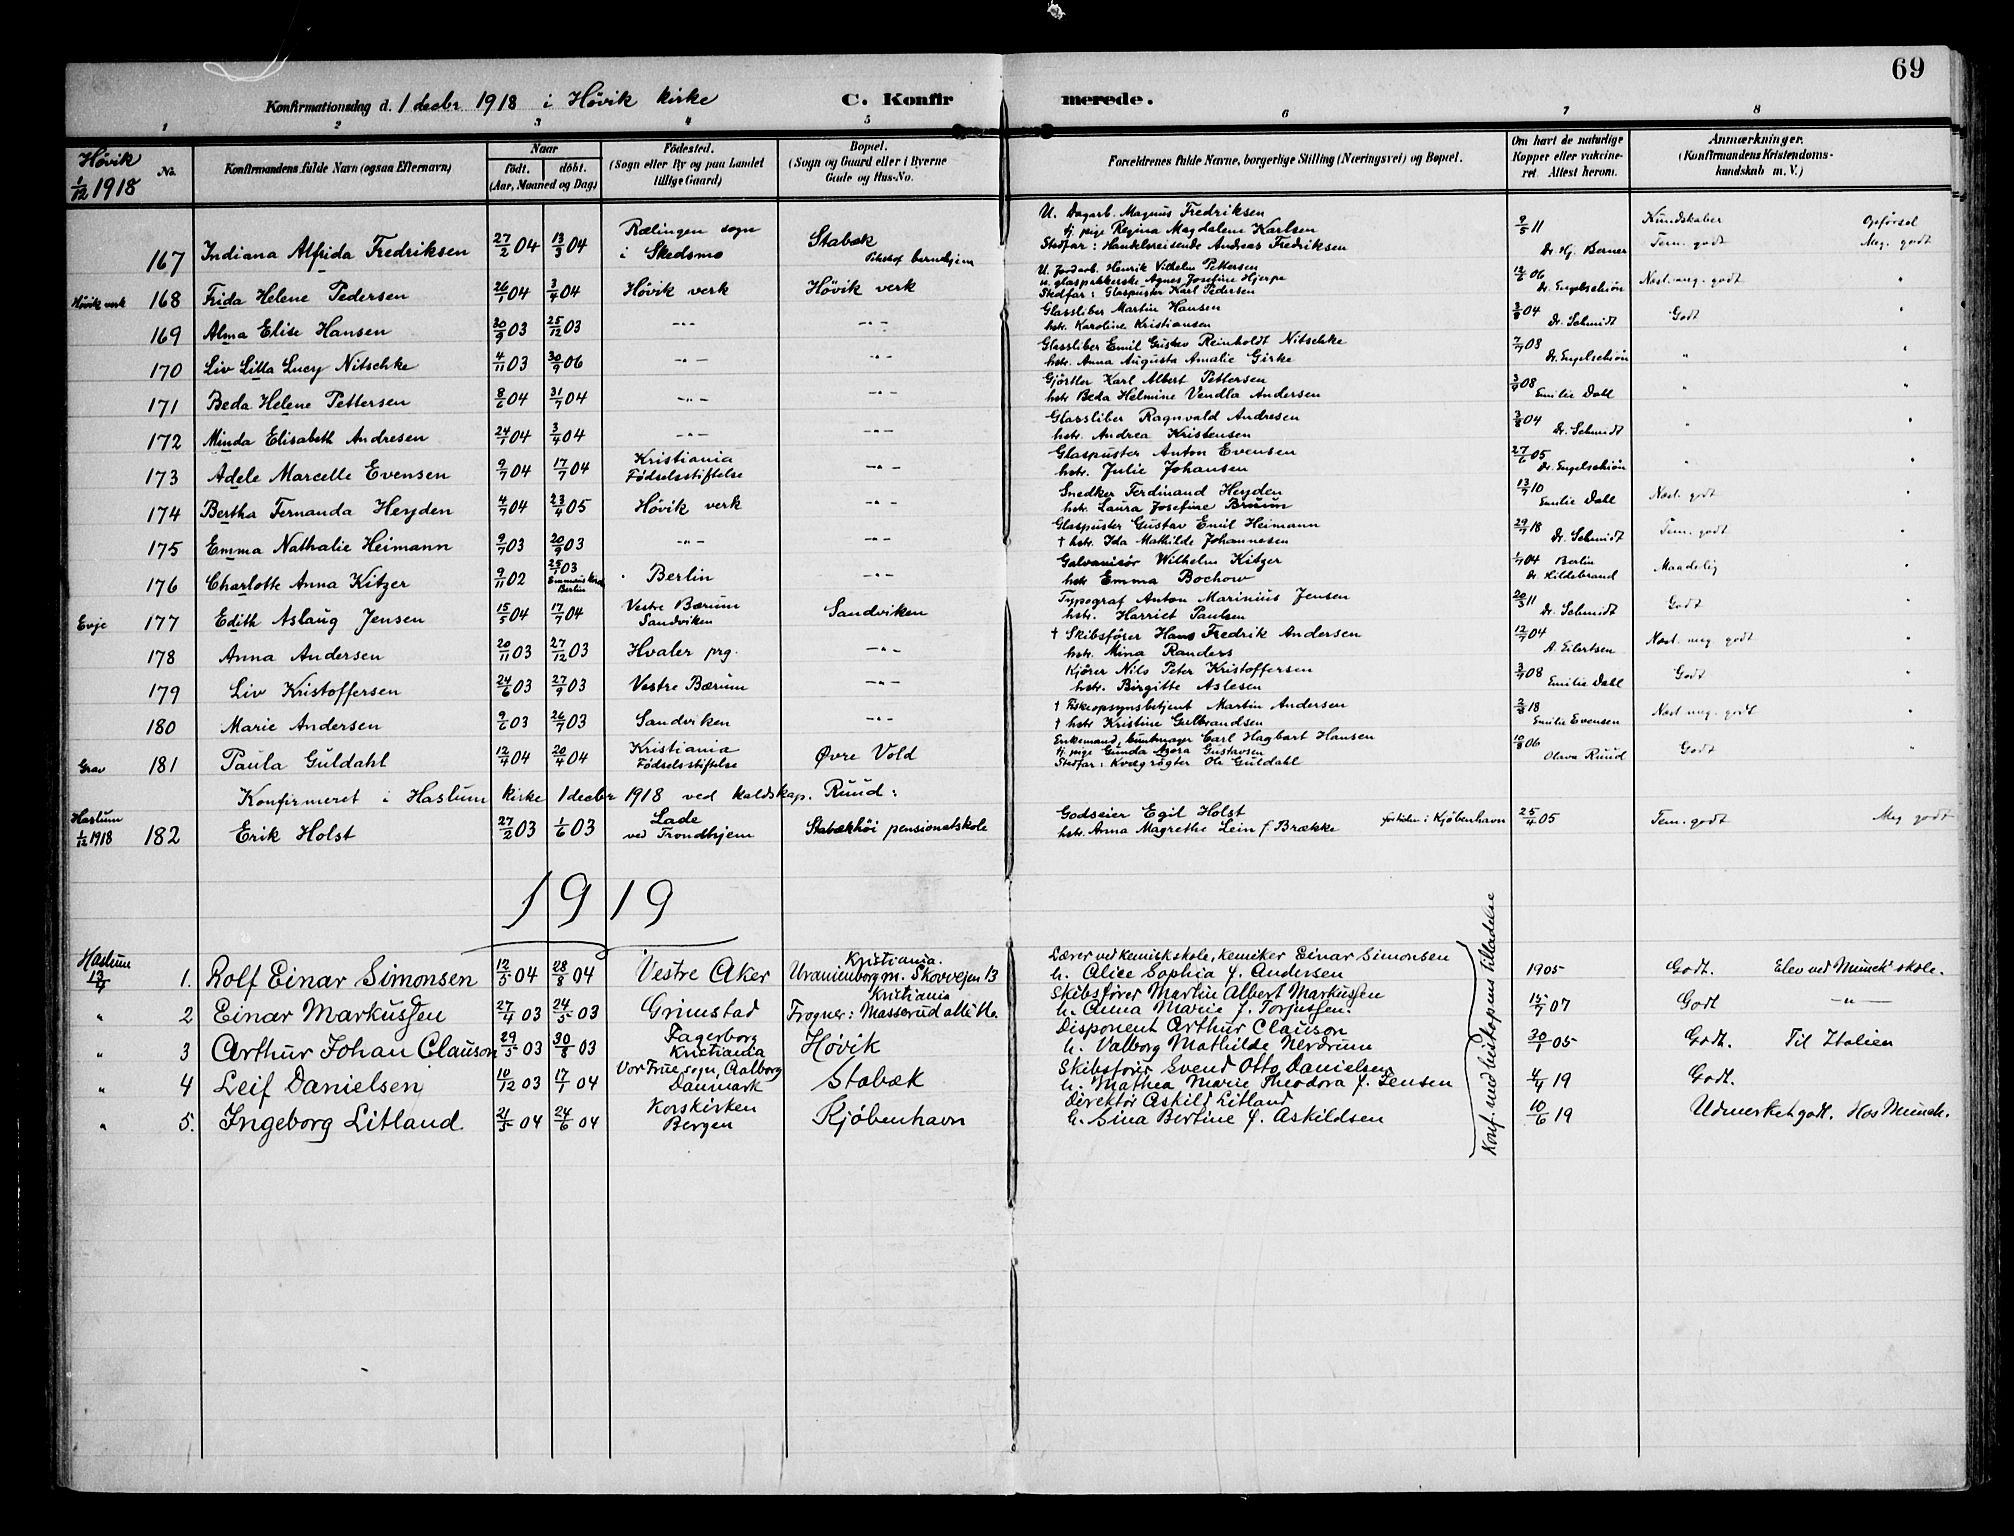 69
Konfirmationsdag d. 1 decbr 1918 i Høvik kirke C. Konfirmerede.
1 2 3 4 5 6 7 8
Høvik 1/12 1918
No.
Konfirmandens fulde Navn (ogsaa Efternavn)
Naar
født. døbt.
(Aar, Maaned og Dag)
Fødested.
(Sogn eller By og paa Landet
tillige Gaard)
Bopæl.
(Sogn og Gaard eller i Byerne
Gade og Hus-No.
Forældrenes fulde Navne, borgerlige Stilling (Næringsvei) og Bopæl.
Om havt de naturlige
Kopper eller vaksine-
ret. Attest herom.
Anmærkninger.
(Konfirmandens Kristendoms-
kundskab m. V.)
Kundskaber
167 Indiana Alfrida Fredriksen 27/2 04 13/3 04 Rælingen sogn i Skedsmo Stabæk barnehjem
U. Dagarb. Magnus Fredriksen
tj. pige Regina Magdalene Karlsen
Stedfar: Handelsreisende Andreas Fredriksen
9/5 11 Dr. Hj. Berner Tem. godt Meg. godt
Høvik verk 168 Frida Helene Pedersen 26/1 04 3/4 04 Høvik verk Høvik verk
U. Jordarb. Henrik Vilhelm Pettersen
u. glaspakkerske Agnes Josefine Hjerpe
Stedfar: Glaspuster Karl Pedersen
12/2 06 Dr. Engelschiøn Næst. meg. godt "
169 Alma Elise Hansen 30/9 03 25/12 03 -"- -"-
Glassliber Martin Hansen
hstr. Karoline Kristiansen
3/8 04 Dr. Schmidt Godt "
170 Liv Lilla Lucy Nitschke 4/11 03 30/9 06 -"- -"-
Glassliber Emil Gustav Reinholdt Nitschke
hstr. Anna Augusta Amalie Girke
7/7 08 Dr. Engelschiøn " "
171 Beda Helene Pettersen 8/6 04 31/7 04 -"- -"-
Gjørtler Karl Albert Pettersen
hstr Beda Helmine Vendla Andersen
3/9 08 Emilie Dahl " "
172 Minda Elisabeth Andresen 24/1 04 3/4 04 -"- -"-
Glassliber Ragnvald Andresen
hstr. Andrea Kristensen
3/8 04 Dr. Schmidt " "
173 Adele Marcelle Evensen 9/7 04 17/7 04 Kristiania Fødselsstiftelse -"-
Glaspuster Anton Evensen
hstr. Julie Johansen
27/6 05 Dr. Engelschiøn " "
174 Bertha Fernanda Heyden 4/7 04 23/4 05 Høvik verk -"-
Snedker Ferdinand Heyden
hstr. Laura Josefine Bruun
13/7 10 Emilie Dahl Næst. godt "
175 Emma Nathalie Heimann 9/7 03 20/9 03 -"- -"-
Glaspuster Gustav Emil Heimann
† hstr. Ida Mathilde Johannesen
29/7 18 Dr. Schmidt Tem. godt "
176 Charlotte Anna Kitzer 9/11 02 25/1 03 Berlin Berlin -"-
Galvanisør Wilhelm Kitzer
hstr Emma Bochow
04 Berlin Dr. Hildebrand Maadelig "
Evje 177 Edith Aslaug Jensen 15/5 04 17/7 04 Vestre Bærum Sandviken Sandviken
Typograf Anton Marinius Jensen
hstr. Harriet Paulsen
20/3 11 Dr. Schmidt Godt "
178 Anna Andersen 20/11 03 27/12 03 Hvaler prg. -"-
† Skibsfører Hans Fredrik Andersen
hstr. Mina Randers
12/7 04 A. Eilertsen Næst. meg. godt "
179 Liv Kristoffersen 24/6 03 27/9 03 Vestre Bærum -"-
Kjører Nils Peter Kristoffersen
hstr. Birgitte Aslesen
3/9 08 Emilie Dahl Godt "
180 Marie Andersen 9/6 03 26/7 03 Sandviken -"-
† Fiskeopsynsbetjent Martin Andersen
† hstr Kristine Gulbrandsen
2/8 18 Emilie Evensen Næst meg. godt "
Grav 181 Paula Guldahl 12/4 04 20/4 04 Kristiania Fødselsstiftelse Øvre Vold
Enkemand, buntmager Carl Hagbart Hansen
tj. pige Gunda Azora Gustavsen
Stedfar: Kvægrøgter Ole Guldahl
10/8 06 Olava Ruud Godt "
Konfirmeret i Haslum kirke 1 decbr 1918 ved kaldskap. Ruud:
Haslum 1/12 1918 182 Erik Holst 27/2 03 1/6 03 Lade ved Trondhjem Stabækhøi pensionatskole
Godseier Egil Holst
hstr. Anna Magrethe Lein f Brække fortiden i Kjøbenhavn
25/4 05 Tem. godt Meg godt
1919
Haslum 13/4 1. Rolf Einar Simonsen 12/5 04 28/8 04 Vestre Aker Kristiania. Uranienborg m. Skovveien 13
Lærer ved kemisk skole, kemiker Einar Simonsen
h. Alice Sophia f. Andersen
1905 Godt. Elev ved Munck' skole.
" 2 Einar Markussen 27/4 03 24/5 03 Grimstad Kristiania Frogner: Masserud allé
Skibsfører Martin Albert Markussen
h. Anna Marie f. Torjussen.
15/7 07 Godt -"-
" 3 Arthur Johan Clauson 29/5 03 30/8 03 Fagerborg Kristiania Høvik
Disponent Arthur Clauson
h. Valborg Mathilde Nerdrum
30/1 05 Godt. Til Italien
" 4 Leif Danielsen 10/12 03 17/1 04 Vor Frue sogn, Aalborg Danmark Stabæk
Skibsfører Svend Otto Danielsen
h. Mathea Marie Theodora f. Jensen
4/4 19 Godt.
" 5. Ingeborg Litland 21/5 04 24/6 04 Korskirken Bergen Kjøbenhavn
Direktør Askild Litland
h. Sina Bertine f. Askildsen
10/6 19 Udmerket godt. Hos Munch.
Konf. med biskopens tilladelse